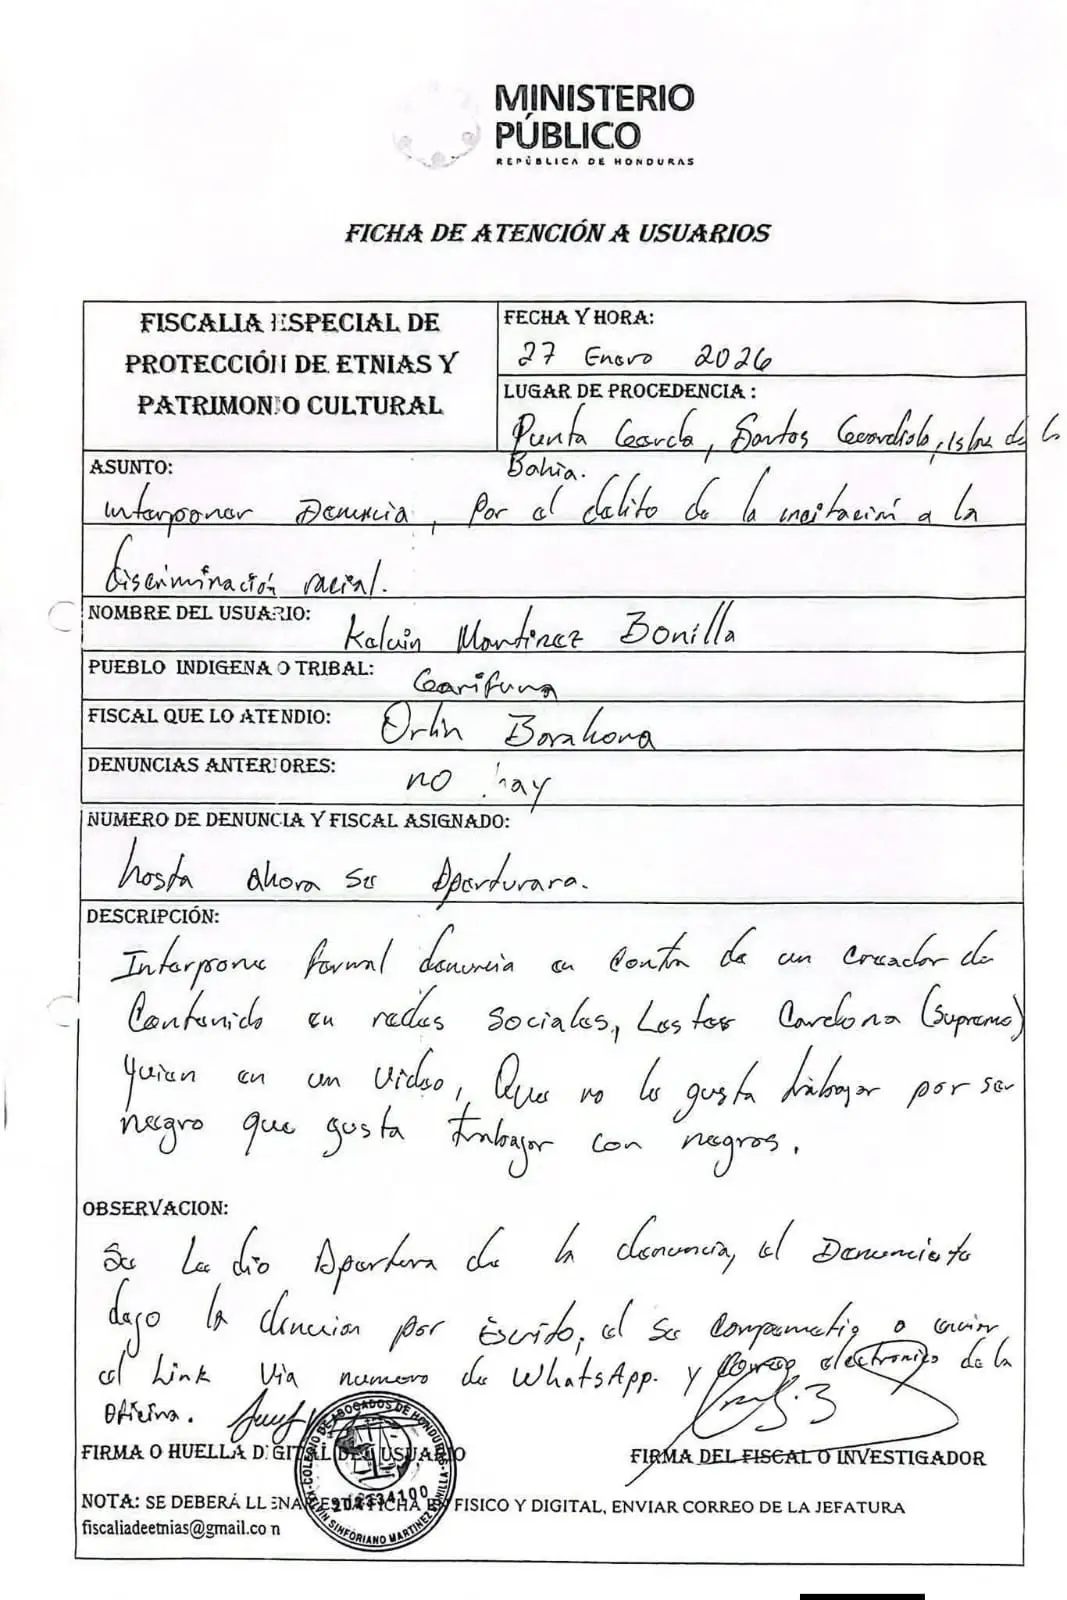 MINISTERIO
PÚBLICO
REPÚBLICA DE HONDURAS
FICHA DE ATENCIÓN A USUARIOS
FISCALIA ESPECIAL DE
PROTECCIÓN DE ETNIAS Y
PATRIMONIO CULTURAL
FECHA Y HORA:
27 Enero 2026
LUGAR DE PROCEDENCIA :
Punta Gorda, Santos Guardiola, Islas de la
Bahia.
ASUNTO:
interponer Denuncia, Por el delito de la incitación a la
discriminación racial.
NOMBRE DEL USUARIO:
Kelvin Martinez Bonilla
PUEBLO INDIGENA O TRIBAL:
Garifuna
FISCAL QUE LO ATENDIO:
Orlin Barahona
DENUNCIAS ANTERIORES:
no hay
NUMERO DE DENUNCIA Y FISCAL ASIGNADO:
hasta ahora se Aperturara.
DESCRIPCIÓN:
Interpone formal denuncia en contra de un creador de
Contenido en redes sociales, Lester Cardona (supremo)
quien en un video, Que no le gusta trabajar por ser
negro que gusta trabajar con negros.
OBSERVACION:
Se Le dio Apertura de la denuncia, el Denunciante
dejo la por Escrito, el se a enviar
el Link Via numero de WhatsApp. y Correo electronico de la
Oficina.
FIRMA O HUELLA DIGITAL DEL USUARIO
FIRMA DEL FISCAL O INVESTIGADOR
COLEGIO DE ABOGADOS DE HONDURAS
KELVIN SINFORIANO MARTINEZ BONILLA
NOTA: SE DEBERÁ LLENAR ESTA FICHA EN FISICO Y DIGITAL, ENVIAR CORREO DE LA JEFATURA
fiscaliadeetnias@gmail.com